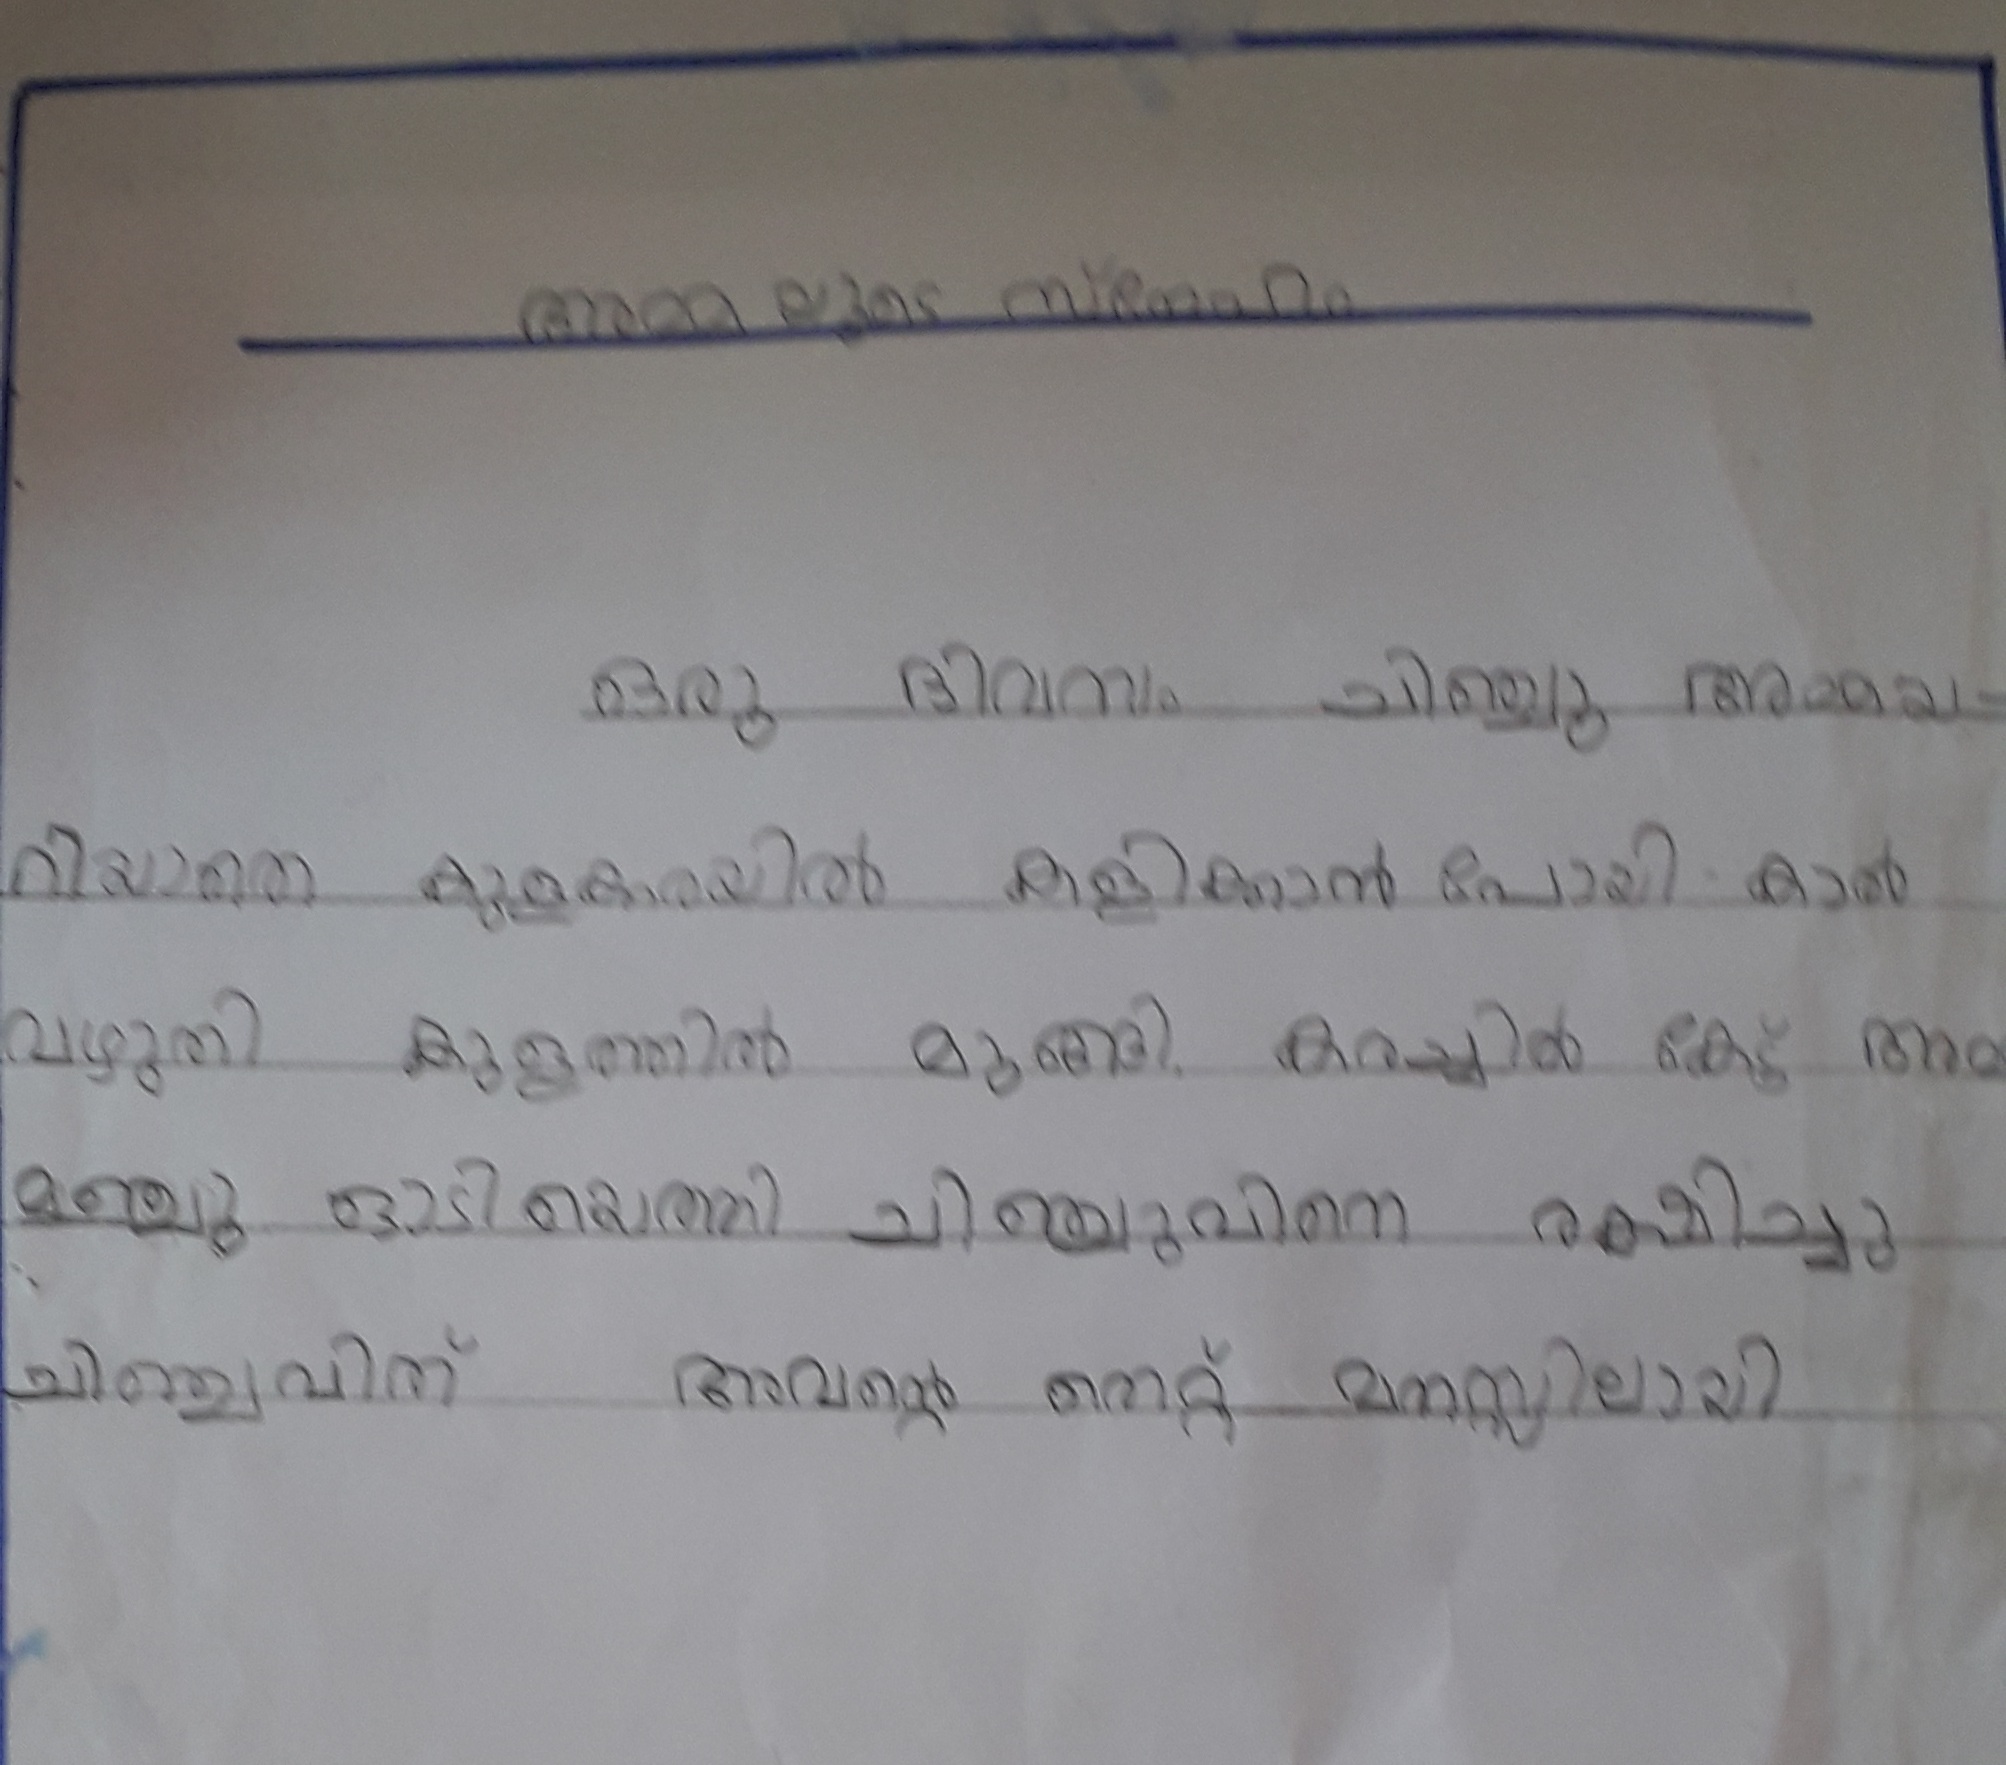 അമ്മയുടെ സ്നേഹം
ഒരു ദിവസം ചിഞ്ചു അമ്മയ-
റിയാതെ കുളകരയിൽ കളിക്കാൻ പോയി. കാൽ
വഴുതി കുളത്തിൽ മുങ്ങി. കരച്ചിൽ കേട്ട് അമ്മ
മഞ്ചു ഓടിയെത്തി ചിഞ്ചുവിനെ രക്ഷിച്ചു
ചിഞ്ചുവിന് അവന്റെ തെറ്റ് മനസ്സിലായി